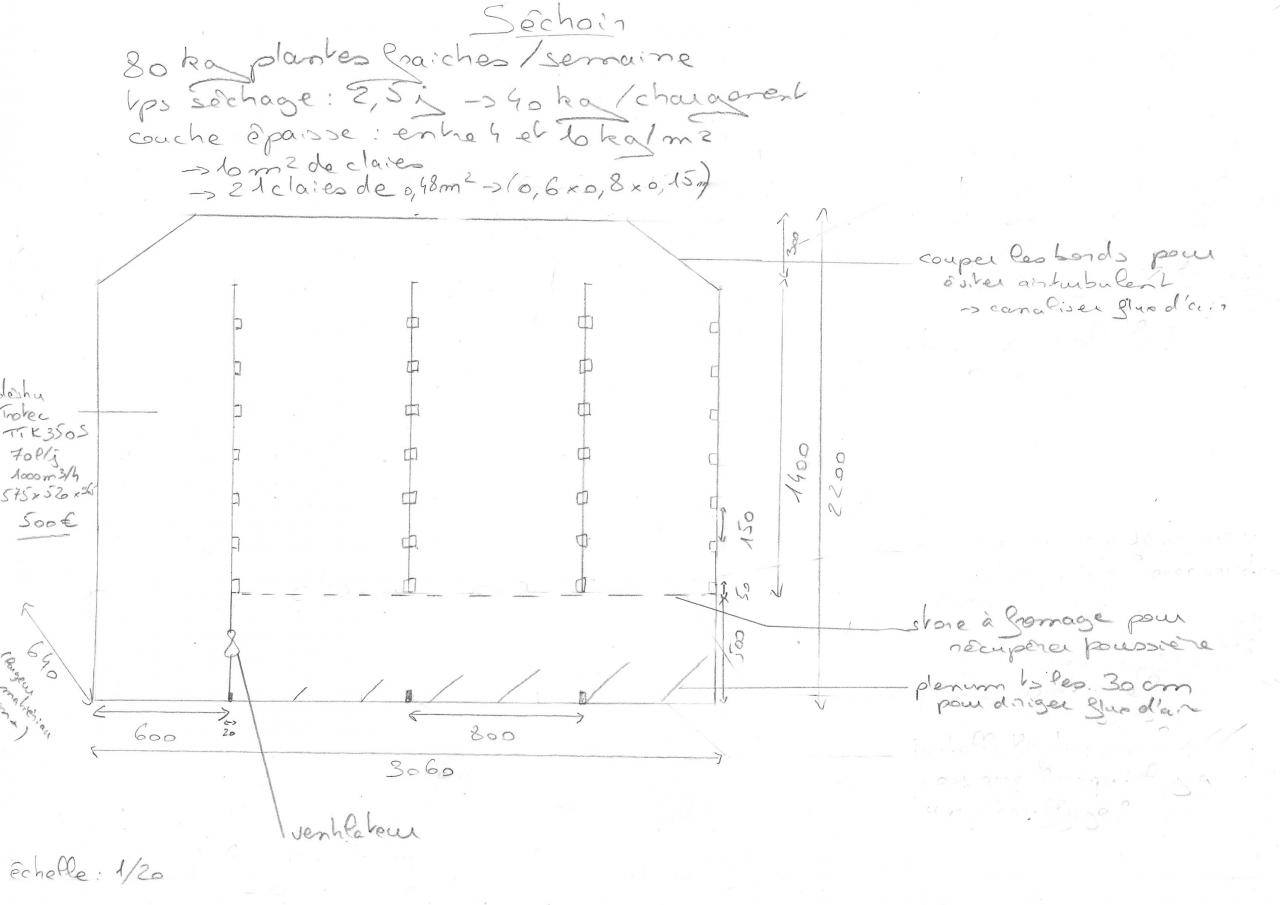 Séchoir
80 kg plantes fraiches/semaine
tps séchage : 2,5 j → 40 kg/chargement
couche épaisse : entre 4 et 10 kg/m2
→ 10 m2 de claies
→ 21 claies de 0,48m² → (0,6 x 0,8 x 0,15m)
300
couper les bords pour
éviter air turbulent
→ canaliser flux d'air
déshu
Trotec
TTK350S
70l/j
1000m3/h
575x520x
500€
1400
2200
150
50
500
store à fromage pour
récupérer poussière
plenum ts les 30 cm
pour diriger flux d'air
640
(largeur
600
20
800
3060
ventilateur
échelle : 1/20